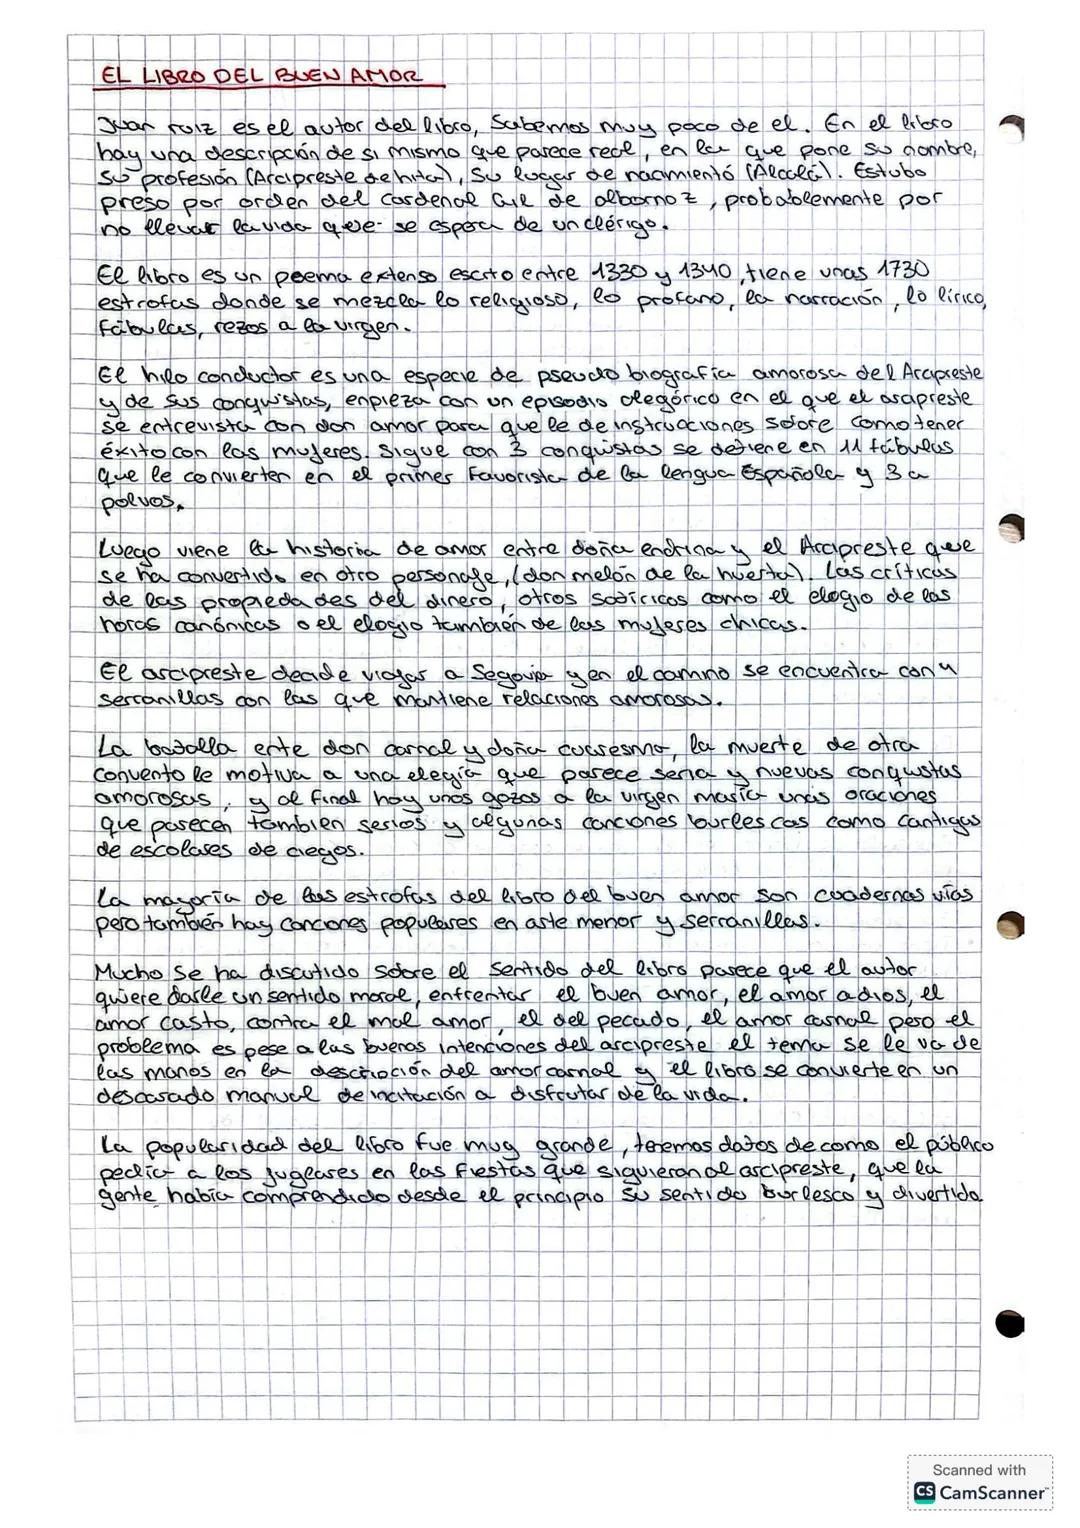 EL LIBRO DEL BUEN AMOR
Juan ruiz es el autor del libro, Sabemos muy poco de el. En el libro
hay una descripción de si mismo que parece real, en la que pone su nombre,
su profesión (Arcipreste de hita), su lugar de nacimientó (Alcalá). Estubo
preso por orden del cardenal Gil de albornoz, probablemente por
no llevar la vida que se espera de un clérigo.
El libro es un poema extenso escrito entre 1330 y 1340, tiene unas 1730
estrofas donde se mezcla lo religioso, lo profano, la narración, lo lírico,
fábulas, rezos a la virgen.
El hilo conductor es una especie de pseudo biografía amorosa del Arcipreste
y de sus conquistas, enpieza con un episodio alegórico en el que el arcipreste
se entrevista con don amor para que le de instrucciones sobre como tener
éxito con las mujeres. Sigue con 3 conquistas se detiene en 11 fábulas
que le convierten en el primer Favorista de la lengua Española y 3 a
polvos.
Luego viene la historia de amor entre doña endrina y el Arcipreste que
se ha convertido en otro personaje, (don melón de la huerta). Las críticas
de las propiedades del dinero, otros satíricos como el elogio de las
horas canónicas o el elogio también de las mujeres chicas.
El arcipreste decide viajar a Segovia y en el camino se encuentra con 4
serranillas con las que mantiene relaciones amorosas.
La batalla ente don carnal y doña cuaresma, la muerte de otra
convento le motiva a una elegía que parece seria y nuevas conquistas
amorosas, y al final hay unos gozos a la virgen maría unas oraciones
que parecen tambien serios y algunas canciones burlescas como cantigas
de escolares de ciegos.
La mayoría de las estrofas del libro del buen amor son cuadernas vías
pero también hay canciones populares en arte menor y serranillas.
Mucho se ha discutido sobre el sentido del libro parece que el autor
quiere darle un sentido moral, enfrentar el buen amor, el amor a dios, el
amor casto, contra el mal amor, el del pecado, el amor carnal pero el
problema es pese a las buenas intenciones del arcipreste el tema se le va de
las manos en la descripción del amor carnal y el libro se convierte en un
descarado manual de incitación a disfrutar de la vida.
La popularidad del libro fue muy grande, tenemos datos de como el público
pedía a los juglares en las fiestas que siguieran al arcipreste, que la
gente había comprendido desde el principio su sentido burlesco y divertido
Scanned with
CS CamScanner